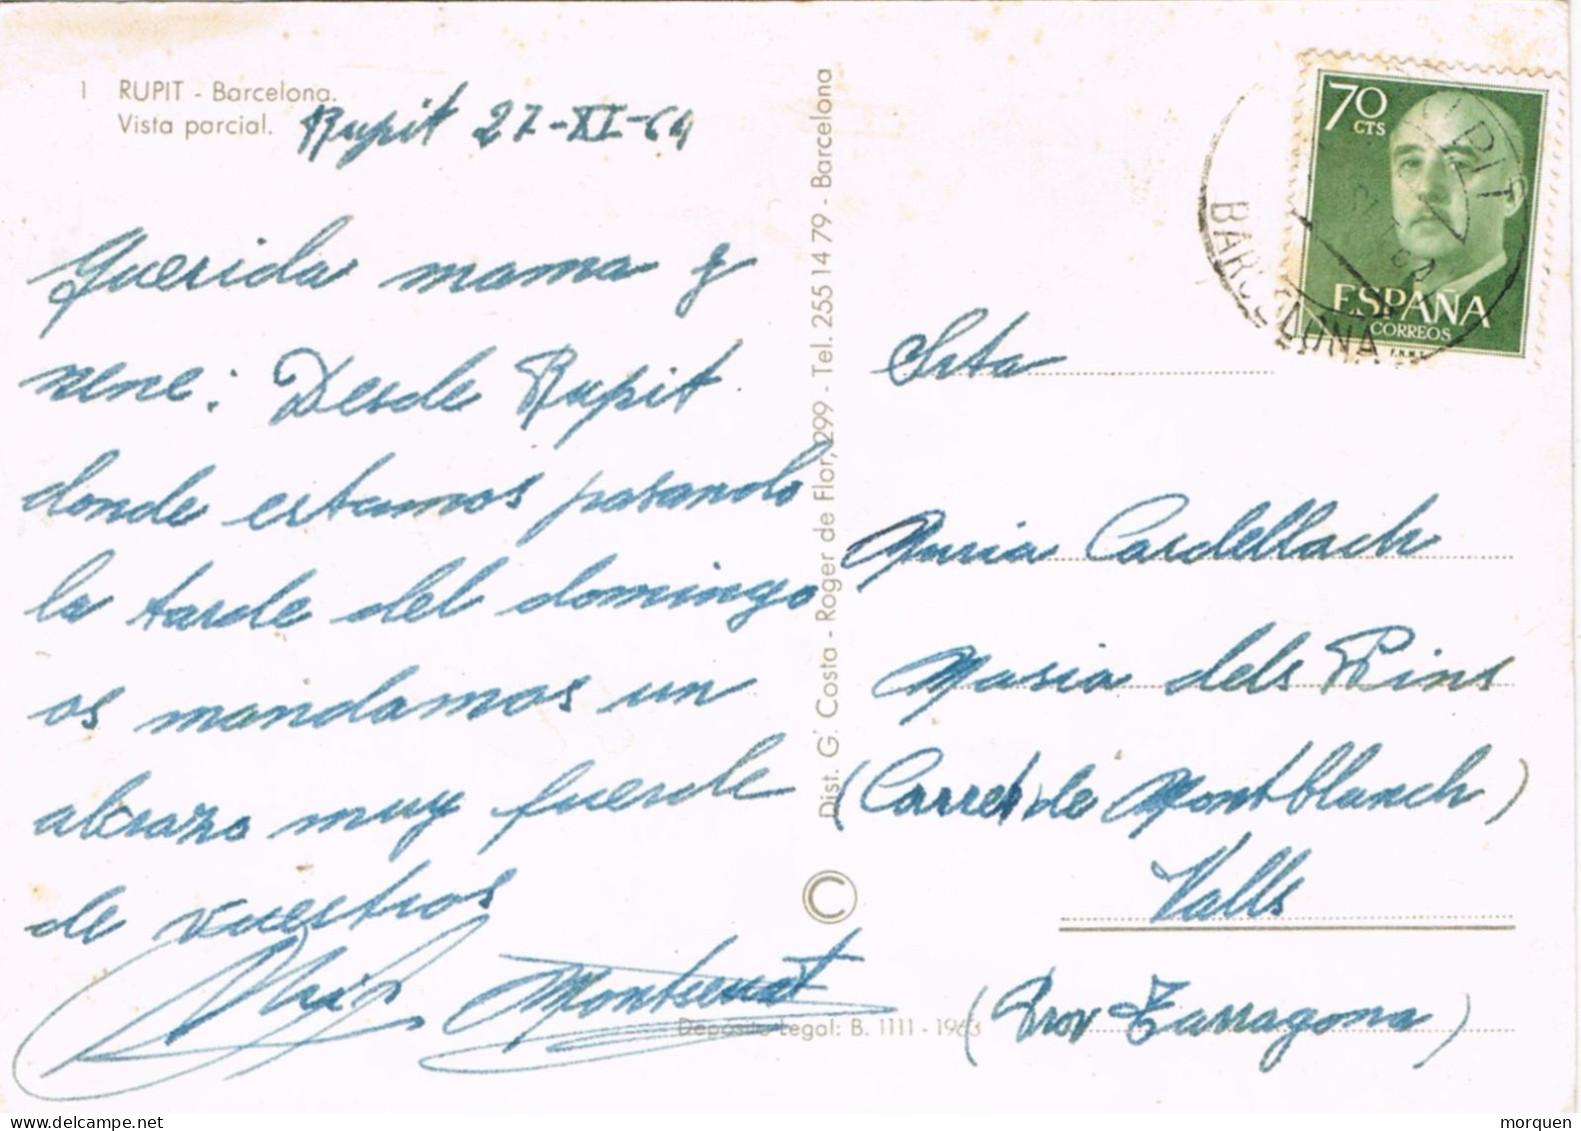 1 RUPIT - Barcelona.
Vista parcial.
Rupit 27-XI-64
Querida mama y
nene: Desde Rupit
donde estamos pasando
la tarde del domingo
os mandamos un
abrazo muy fuerte
de vuestros
Montserrat
Dist. G. Costa - Roger de Flor, 299 - Tel. 255 14 79 - Barcelona
©
Depósito Legal: B. 1111 - 1963
70
CTS
ESPAÑA
CORREOS
F.N.M.T.
BARCELONA
Srta
Nuria Cardellach
Masia dels Pins
(Carret de Montblanch)
Valls
(Prov Tarragona)
morquen